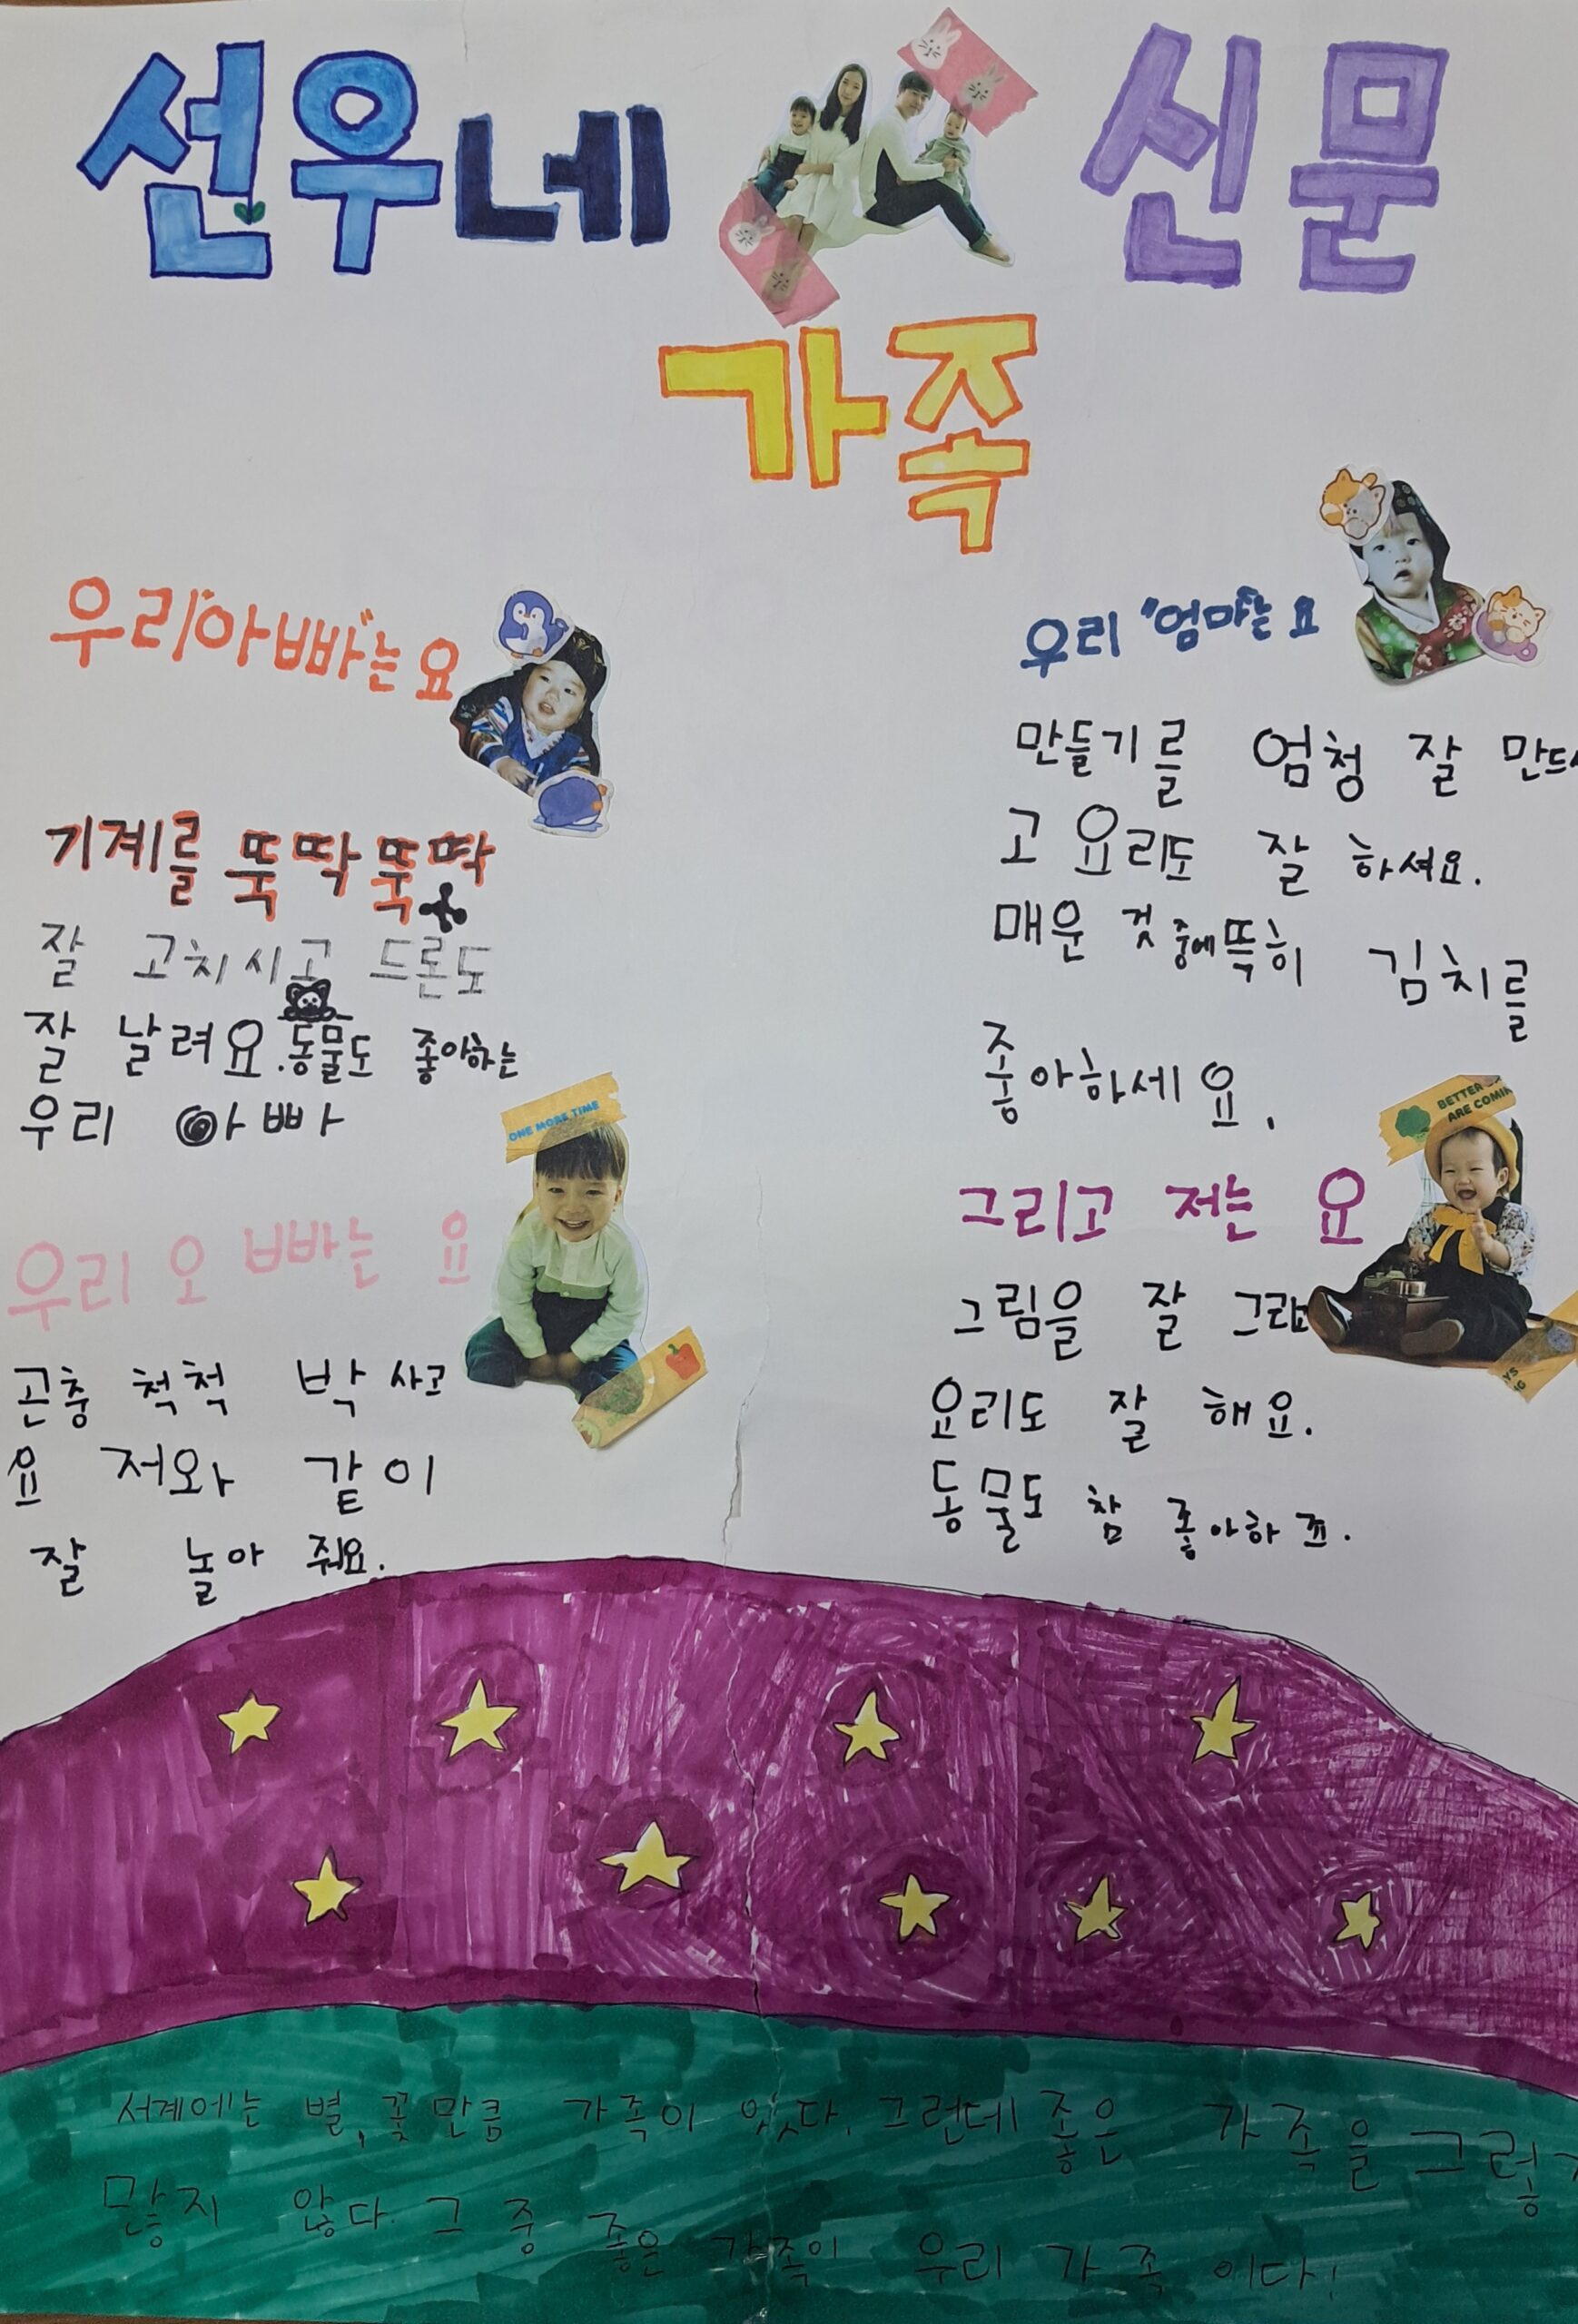 선우네 신문
가족
우리"아빠"는요
기계를 뚝딱뚝딱
잘 고치시고 드론도
잘 날려요.동물도 좋아하는
우리 아빠
ONE MORE TIME
우리 오빠는 요
곤충 척척 박사고
요 저와 같이
잘 놀아 줘요.
우리 "엄마"는 요
만들기를 엄청 잘 만드시
고 요리도 잘 하셔요.
매운 것 중에뜩히 김치를
좋아하세요.
BETTER
ARE COMIN
그리고 저는 요
그림을 잘
요리도 잘 해요.
동물도 참 좋아하죠.
서계에는 별,꽃만큼 가족이 있다. 그런데 좋은 가족을 그렇
많지 않다. 그 중 좋은 가족이 우리 가족 이다!